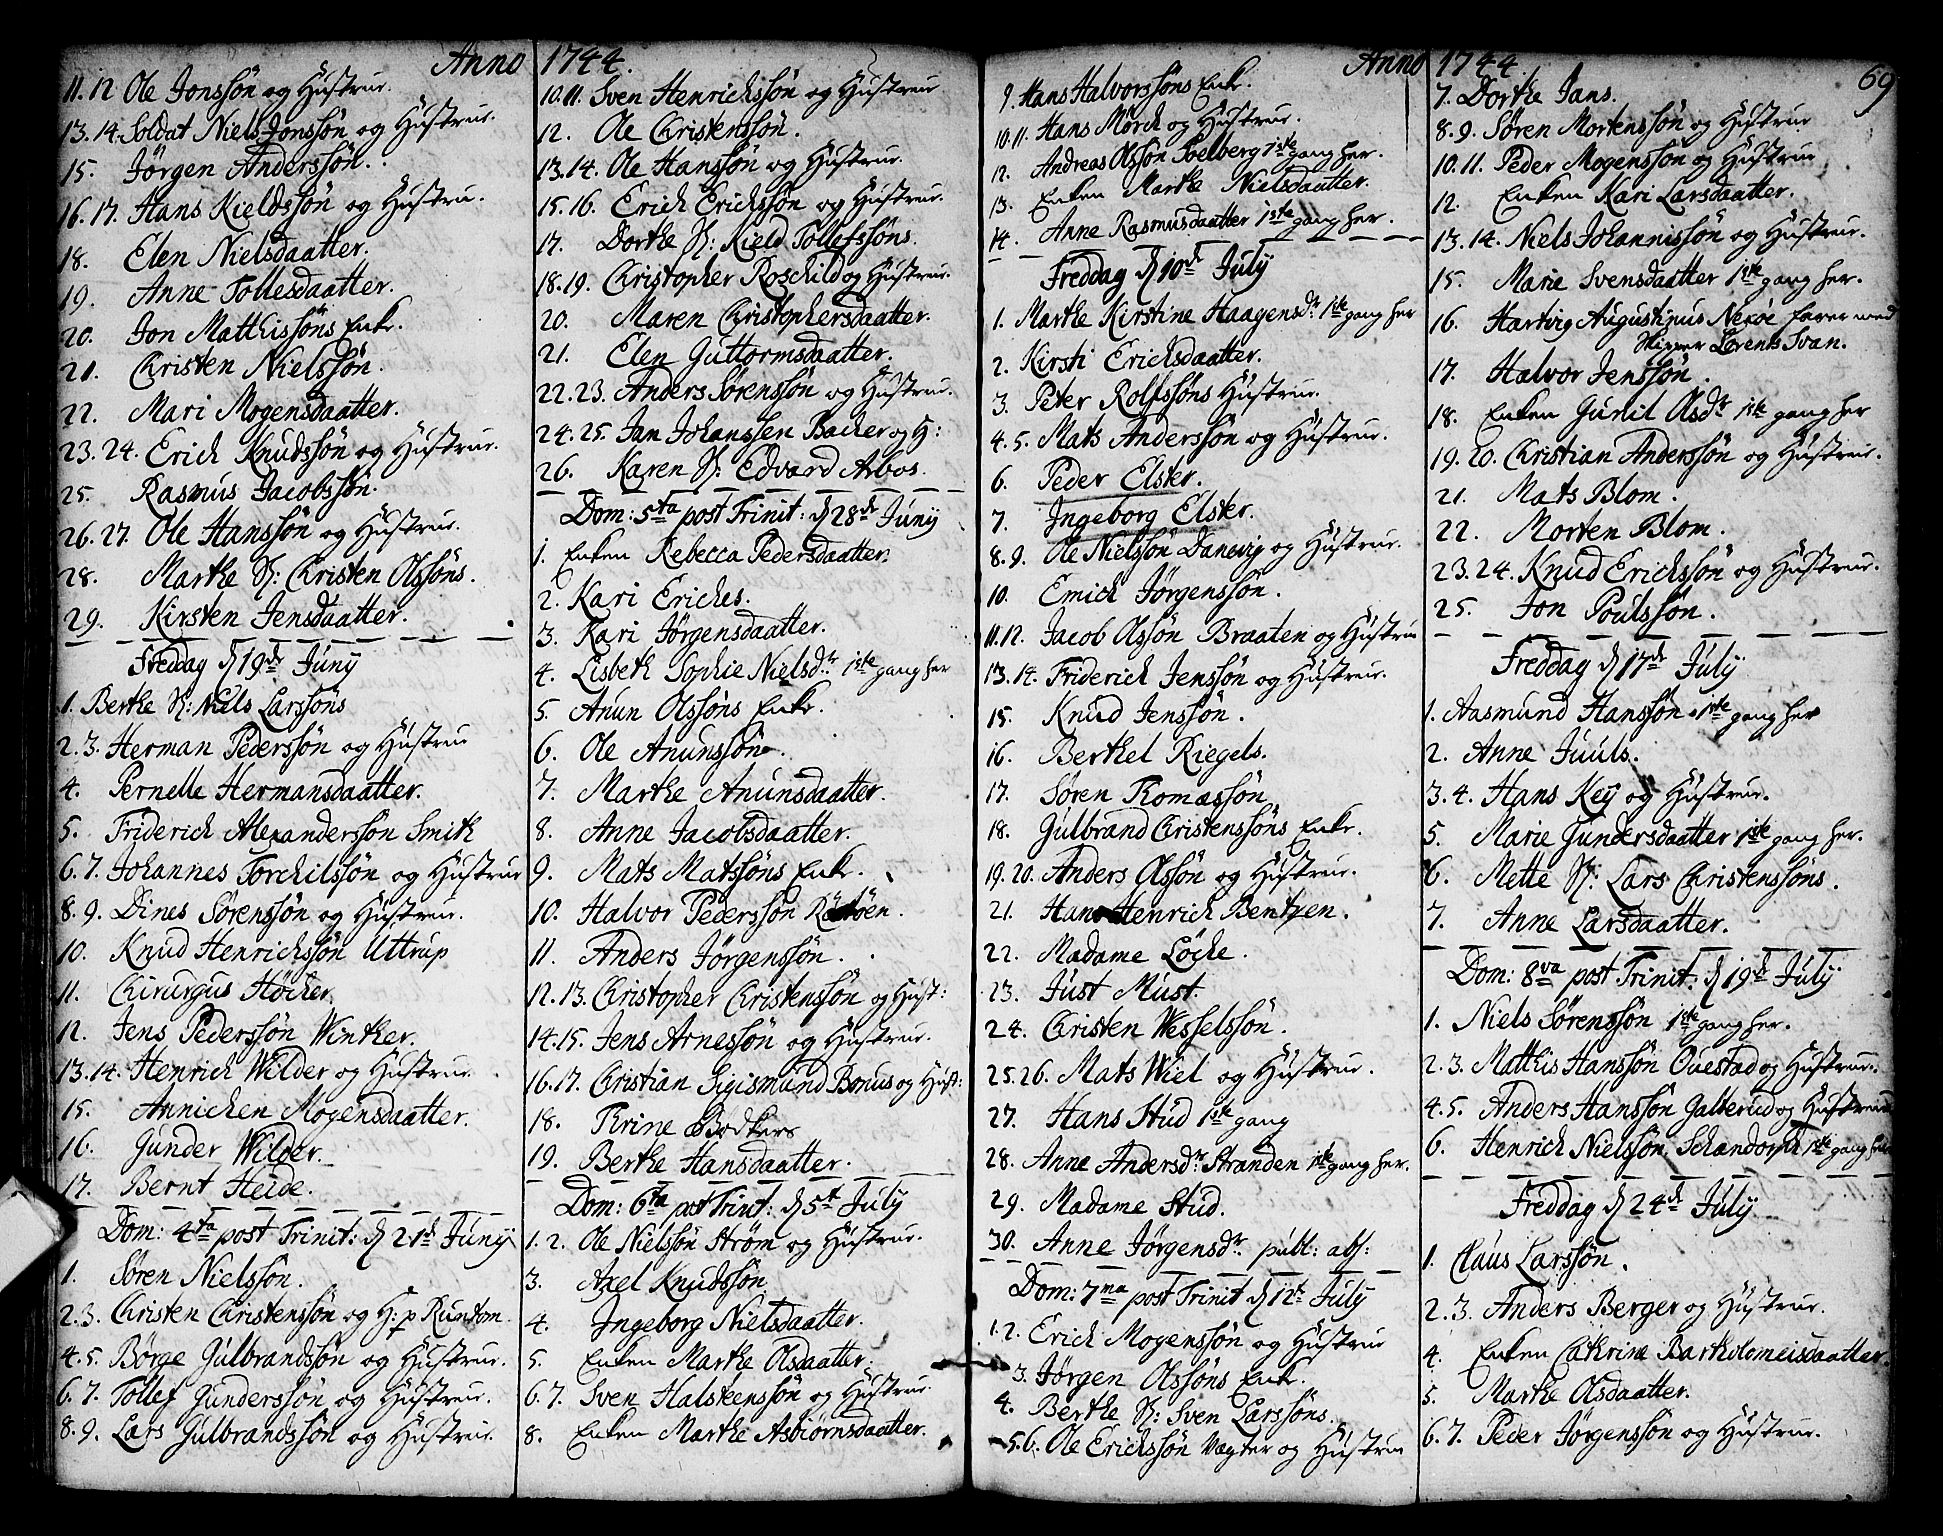 Anno 1744.
11. 12 Ole Jonssön og Hüstrur.
13. 14. Soldat Niels Jonssön og Hüstrur.
15. Jörgen Anderssön.
16. 17. Hans Kieldssön og Hüstru.
18. Elen Nielsdaatter.
19. Anne Tollesdaatter.
20. Jon Matthissöns Enke.
21. Christen Nielssön.
22. Mari Mogensdaatter.
23. 24. Erich Knudssön og Hüstrur.
25. Rasmus Jacobssön.
26. 27. Ole Hanssön og Hüstrur.
28. Marthe S: Christen Olssöns.
29. Kirsten Jensdaatter.
Freddag d 19de Juny
1. Berthe S: Niels Larssöns
2. 3. Herman Pederssön og Hüstrur
4. Pernelle Hermansdaatter.
5. Friderich Alexanderssön Smith
6. 7. Johannes Torchilssön og Hüstrur
8. 9. Dines Sörenssön og Hüstrur.
10. Knud Henrichssön Uttrup
11. Chirurgus Höcher.
12. Jens Pederssön Winther.
13. 14. Henrich Wilder og Hüstrur.
15. Annichen Mogensdaatter.
16. Gunder Wilder.
17. Bernt Heide.
Dom: 4ta post Trinit: d 21de Juny
1. Sören Nielssön.
2. 3. Christen Christenssön og H: p Runtom.
4. 5. Börge Gulbrandssön og Hüstrur.
6. 7. Tollef Gunderssön og Hüstrur.
8. 9. Lars Gulbrandssön og Hüstrur.
10. 11. Sven Henrichssön og Hüstrur
12. Ole Christenssön.
13. 14. Ole Hanssön og Hüstrur.
15. 16. Erich Erichssön og Hüstrur.
17. Dorthe S: Kield Tollefssöns.
18. 19. Christopher Roschild og Hüstrur.
20. Maren Christophersdaatter.
21. Elen Guttormsdaatter.
22. 23. Anders Sörenssön og Hüstrur.
24. 25. Jan Johanssen Bacher og H:
26. Karen S: Edvard Arbos.
Dom: 5ta post Trinit: d 28de Juny
1. Enken Rebecca Pedersdaatter.
2. Kari Eriches.
3. Kari Jörgensdaatter.
4. Lisbeth Sophie Nielsdr 1ste gang her
5. Anun Olssöns Enke.
6. Ole Anunssön.
7. Marthe Anunsdaatter.
8. Anne Jacobsdaatter.
9. Mats Matssöns Enke.
10. Halvor Pederssön
11. Anders Jörgenssön.
12. 13. Christopher Christenssön og Hüst:
14. 15. Jens Arnessön og Hüstrur.
16. 17. Christian Sigismund Bonus og Hüst:
18. Trine Bödkers
19. Berthe Hansdaatter.
Dom: 6ta post Trinit: d 5t July
1. 2. Ole Nielssön Ström og Hüstrur.
3. Axel Knudssön
4. Ingeborg Nielsdaatter.
5. Enken Marthe Olsdaatter.
6. 7. Sven Halstenssön og Hüstrur.
8. Enken Marthe Asbiörnsdaatter.
Anno 1744. 69
9. Hans Halvorssöns Enke.
10. 11. Hans Mörch og Hüstrur.
12. Andreas Olssön Soelberg 1ste gang her.
13. Enken Marthe Nielsdaatter.
14. Anne Rasmusdaatter 1ste gang her.
Freddag d 10de July
1. Marthe Kirstine Haagensdr 1ste gang her
2. Kirsti Erichsdaatter.
3. Peter Rolfssöns Hüstrur.
4. 5. Mats Anderssön og Hüstrur.
6. Peder Elster.
7. Ingeborg Elster.
8. 9. Ole Nielssön Danevig og Hüstrur.
10. Emich Jörgenssön.
11. 12. Jacob Olssön Braaten og Hüstrur
13. 14. Friderich Jenssön og Hüstrur.
15. Knud Jenssön.
16. Berthel Riegels.
17. Sören Tomassön
18. Gulbrand Christenssöns Enke.
19. 20. Anders Olssön og Hüstrur.
21. Hans Henrich Bentzen.
22. Madame Löcke.
23. Just Must.
24. Christen Wesselssön.
25. 26. Mats Wiel og Hüstrur.
27. Hans Stud 1ste gang
28. Anne Andersdr Stranden 1ste gang her.
29. Madame Stud.
30. Anne Jörgensdr publ: abs:
Dom: 7ma post Trinit d 12te July
1. 2. Erich Mogenssön og Hüstrur
3. Jörgen Olssöns Enke.
4. Berthe S: Sven Larssöns.
5. 6. Ole Erichssön Vægter og Hüstrur
7. Dorthe Jans.
8. 9. Sören Mortenssön og Hüstrur
10. 11. Peder Mogenssön og Hüstrur
12. Enken Kari Larsdaatter.
13. 14. Niels Johannissön og Hüstrur.
15. Marie Svensdaatter 1ste gang her.
16. Hartvig Augustinus Nexöe farer med
Skipper Lorents Svan.
17. Halvor Jenssön.
18. Enken Gunil Olsdr 1ste gang her
19. 20. Christian Anderssön og Hüstrur.
21. Mats Blom.
22. Morten Blom.
23. 24. Knud Erichssön og Hüstrur.
25. Jon Poulssön.
Freddag d 17de July
1. Aasmund Hanssön 1ste gang her
2. Anne Juuls.
3. 4. Hans Key og Hüstrur.
5. Marie Gundersdaatter 1ste gang her.
6. Mette S: Lars Christenssöns.
7. Anne Larsdaatter.
Dom: 8va post Trinit: d 19de July
1. Niels Sörenssön 1ste gang her.
2. 3. Matthis Hanssön Ouestad og Hüstrur.
4. 5. Anders Hanssön Galterud og Hüstrur
6. Henrich Nielssön Schandorph 1ste gang her
Freddag d 24de July
1. Claus Larssön.
2. 3. Anders Berger og Hüstrur.
4. Enken Cathrine Bartholomeisdaatter.
5. Marthe Olsdaatter.
6. 7. Peder Jörgenssön og Hüstrur.